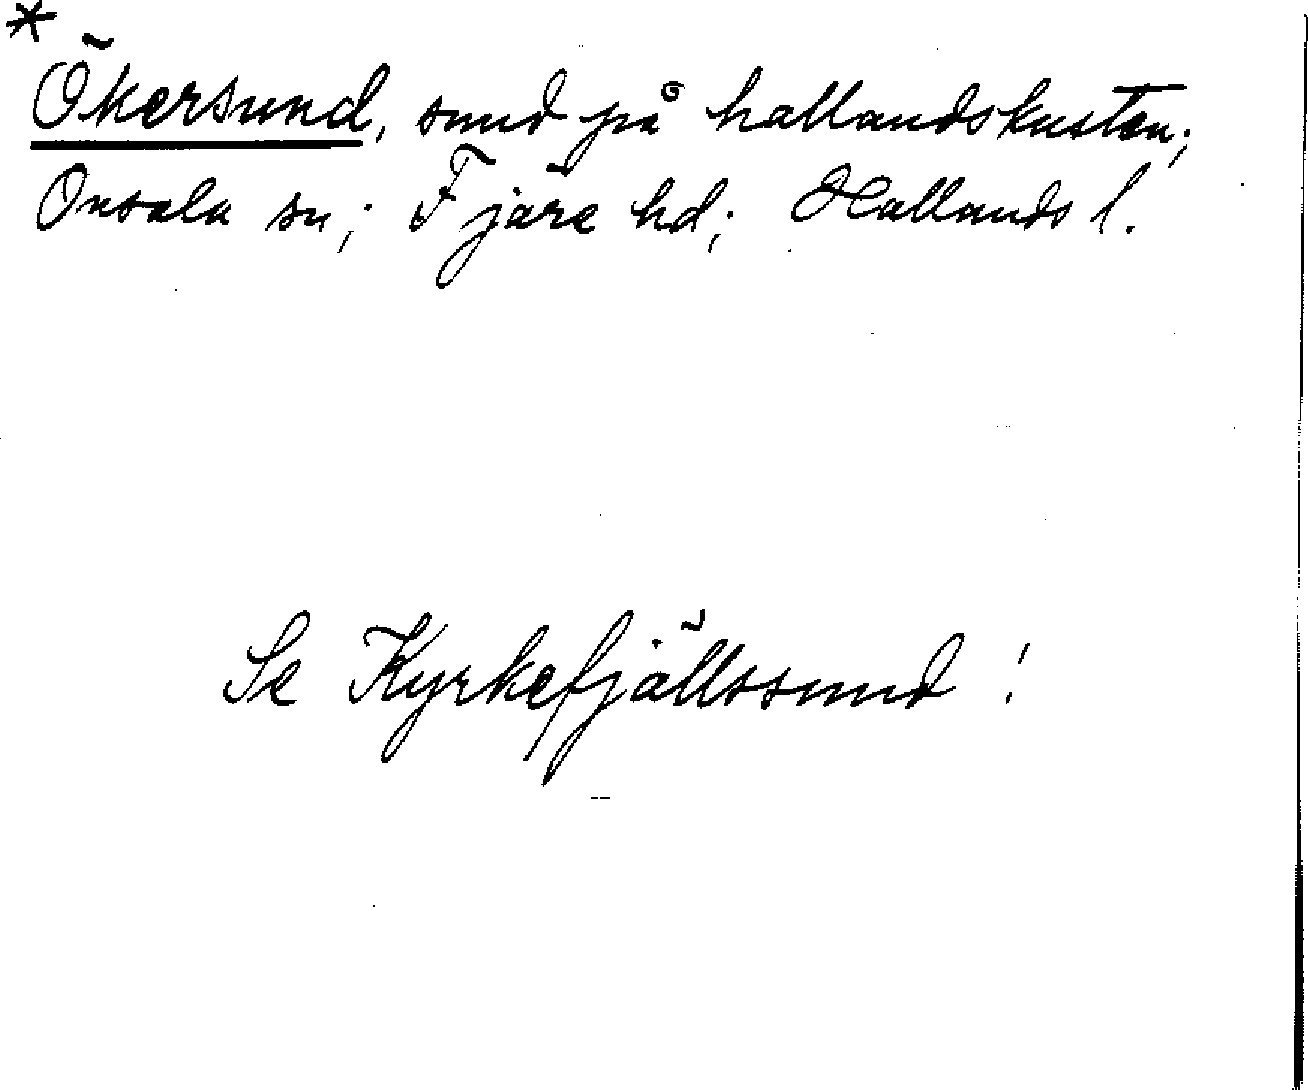 *
Ökersund, sund på hallandskusten;
Onsala sn; Fjäre hd; Hallands l.
Se Kyrkefjällssund!